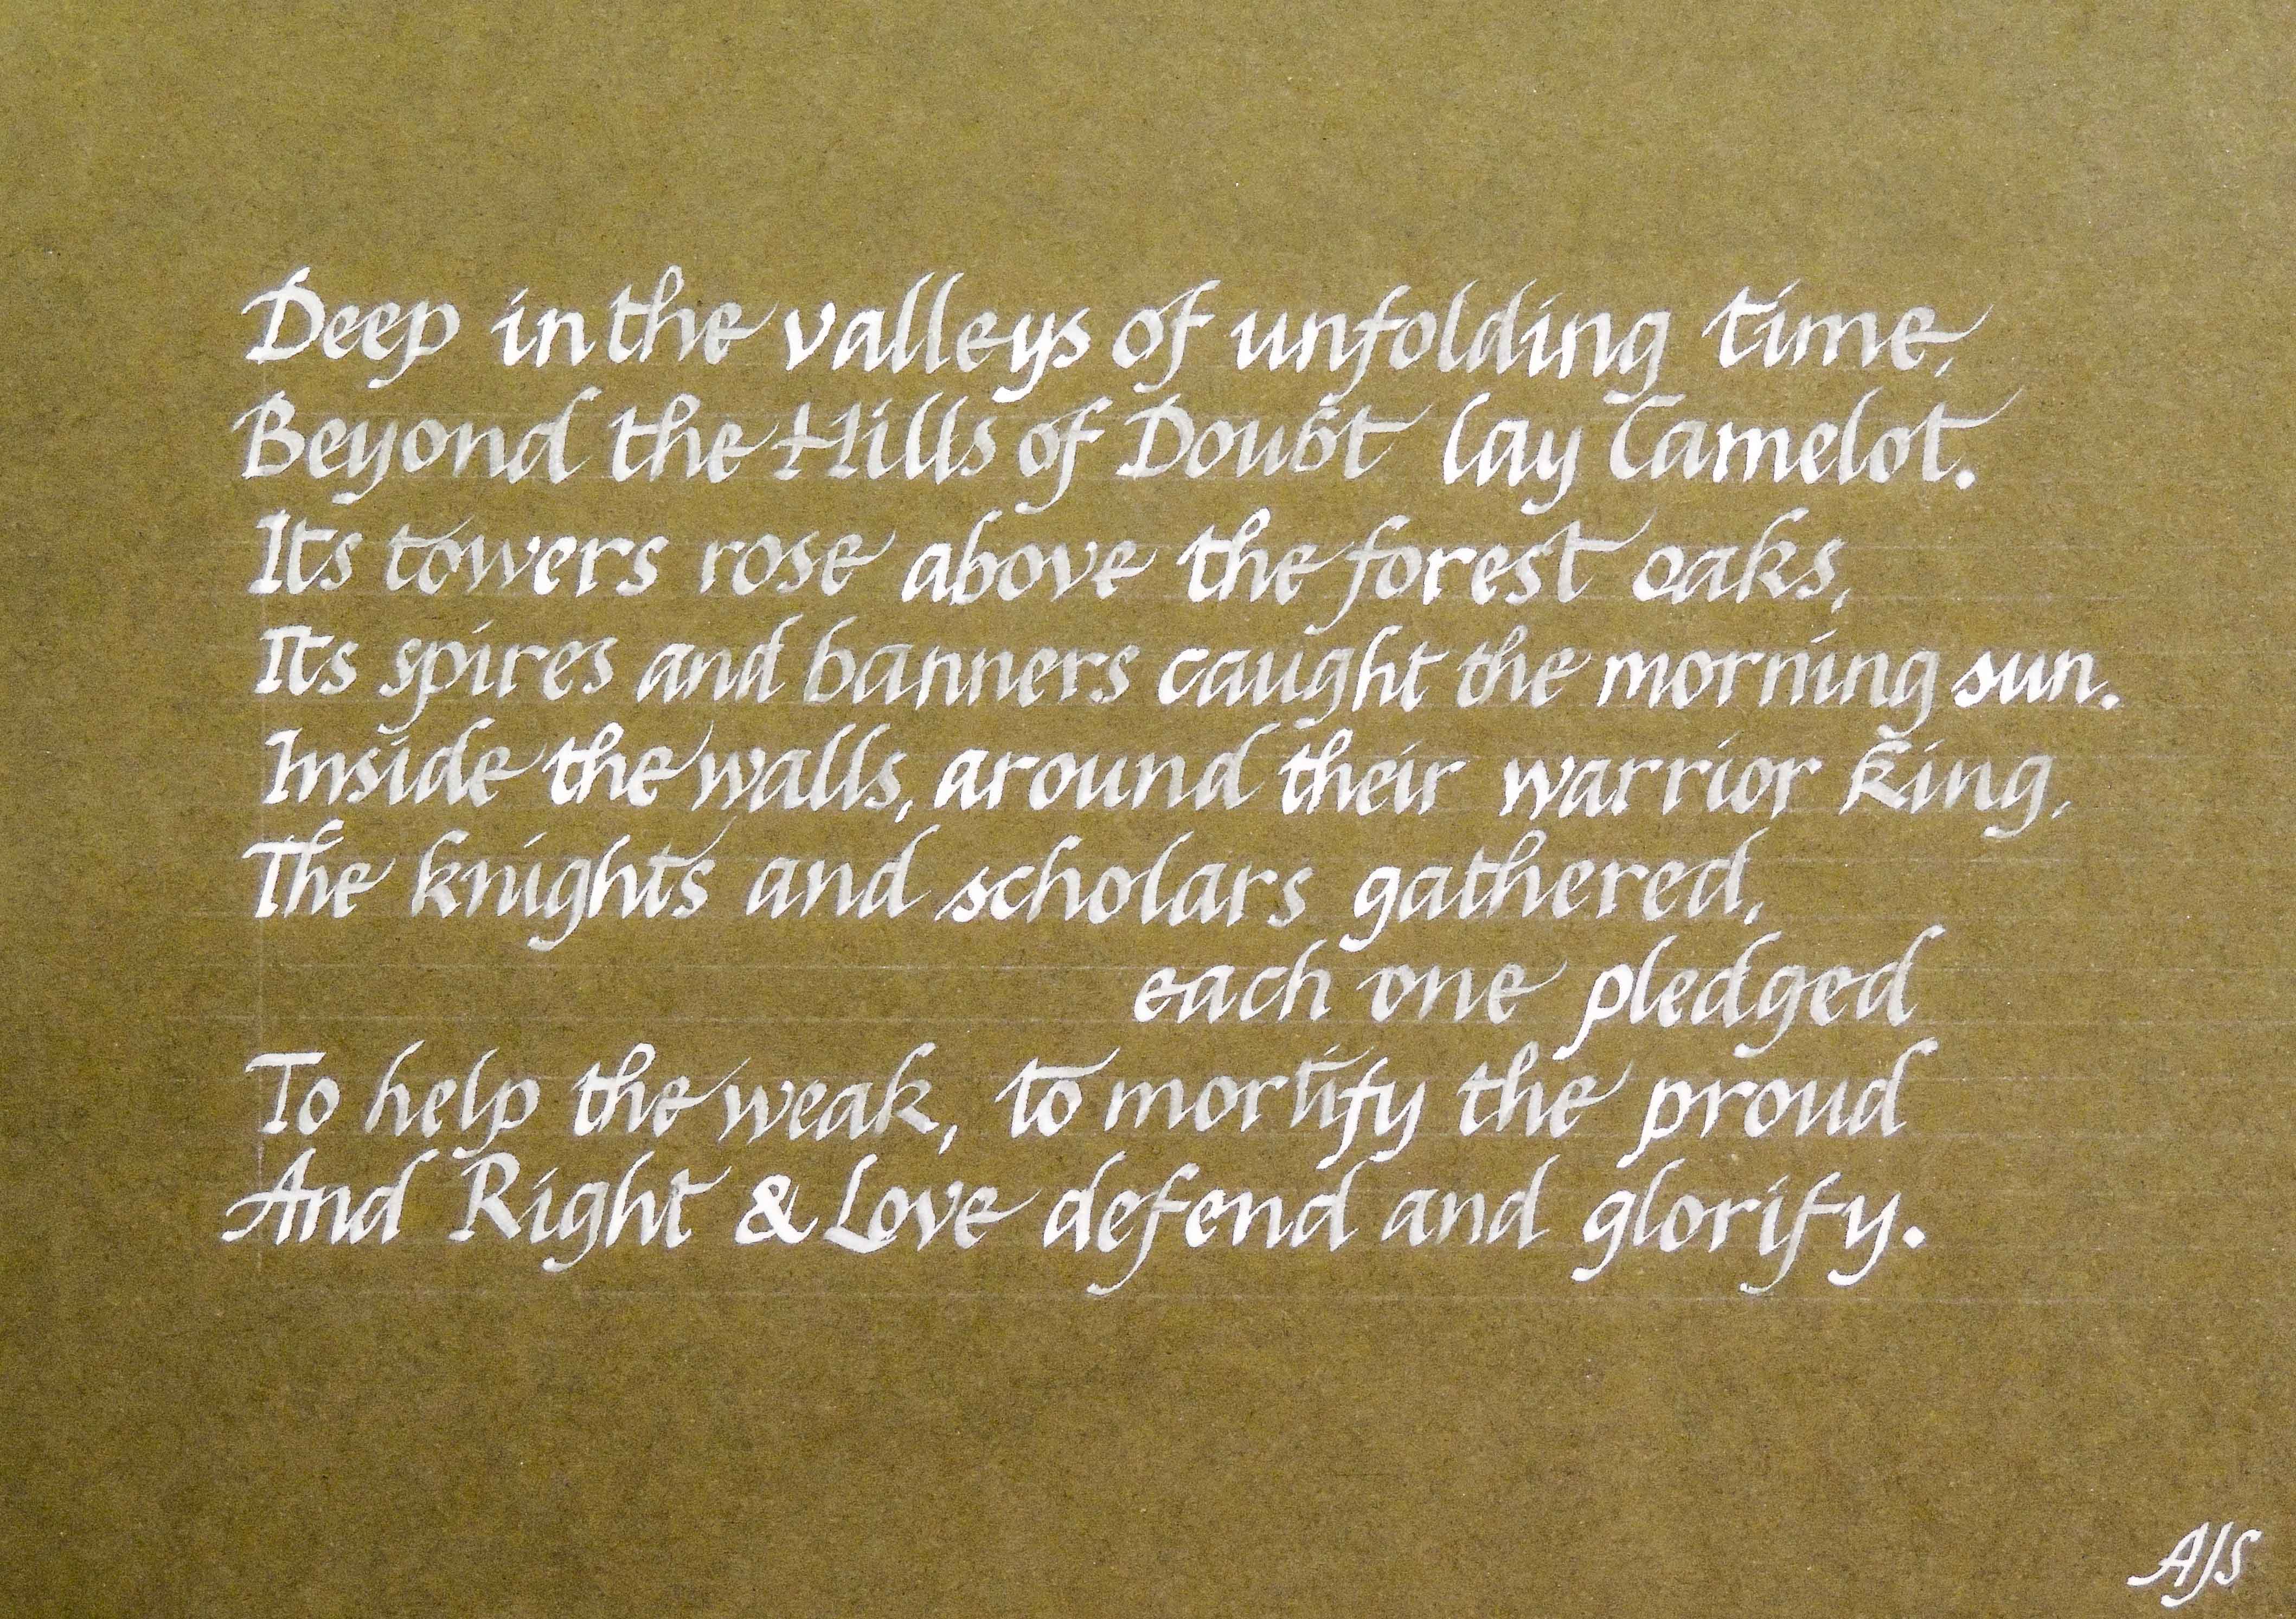 Deep in the valleys of unfolding time,
Beyond the Hills of Doubt lay Camelot.
Its towers rose above the forest oaks,
Its spires and banners caught the morning sun.
Inside the walls, around their warrior king,
The knights and scholars gathered,
each one pledged
To help the weak, to mortify the proud
And Right & Love defend and glorify.
AJS